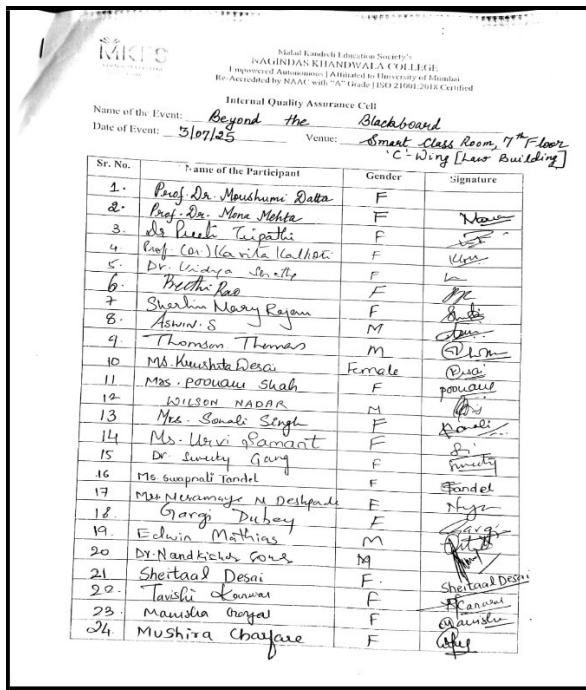 1
MKES
Malad Kandivli Education Society's
NAGINDAS KHANDWALA COLLEGE
Empowered Autonomous | Affiliated to University of Mumbai
Re-Accredited by NAAC with "A" Grade | ISO 21001:2018 Certified
Internal Quality Assurance Cell
Name of the Event: Beyond the Blackboard
Date of Event: 3/07/25 Venue: Smart Class Room, 7th Floor
'C'-Wing [Law Building]
Sr. No. Name of the Participant Gender Signature
1. Prof. Dr. Moushumi Datta F
2. Prof. Dr. Mona Mehta F
3. Dr Preeti Tripathi F
4. Prof. (Dr.) Kavita Kalkoti F
5. Dr. Vidya F
6. Preethi Rao F
7 Sherlin Mary Rajan F
8. ASWIN. S M
9. Thomson Thomas M
10 Ms. Desai Female Desai
11 Mrs. Poonam Shah F poonam
12 WILSON NADAR M
13 Mrs. Sonali Singh F Sonali
14 Ms. Urvi Samant F
15 Dr. Sweety Garg F Sweety
16 Ms. Swapnali Tandel F Tandel
17 Mrs. M Deshpande F
18. Gargi Dubey F Gargi
19. Edwin Mathias M
20 Dr. Nandkishor M
21 Sheitaal Desai F. Sheitaal Desai
22. Tavishi Kanwar F Kanwar
23. Manisha Goyal F Manisha
24. Mushira Chafare F